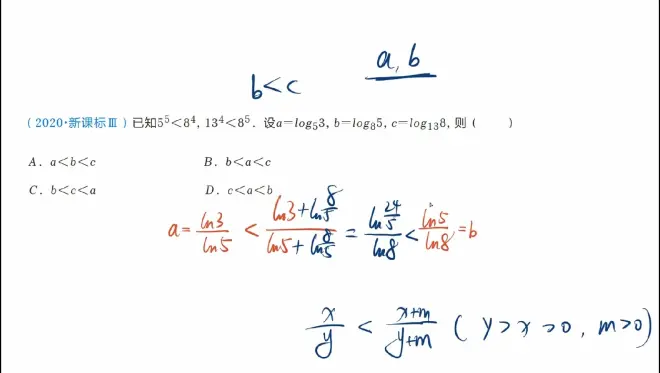 a, b
b<c
(2020·新课标Ⅲ)已知5⁵<8⁴, 13⁴<8⁵. 设a=log₅3, b=log₈5, c=log₁₃8, 则 (  )
A. a<b<c  B. b<a<c
C. b<c<a  D. c<a<b
a= ln3/ln5 < (ln3+ln 8/5)/(ln5+ln 8/5) = (ln 24/5)/ln8 < ln5/ln8 =b
x/y < (x+m)/(y+m) ( y>x>0, m>0)